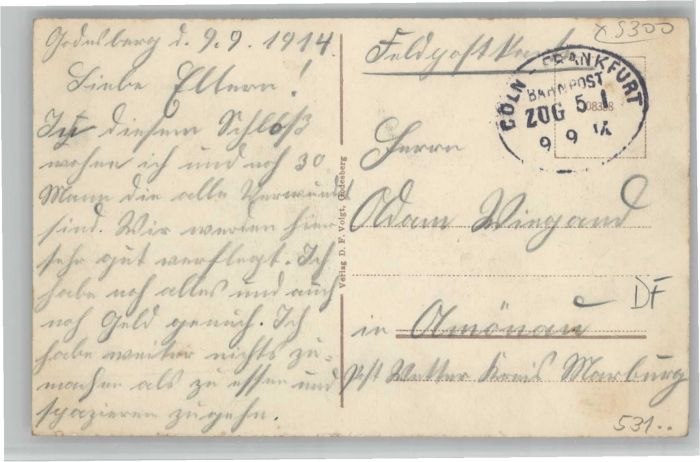 Godesberg d. 9.9.1914.
Liebe Eltern!
In diesem Schloß
wohen ich und noh 30
Mann die alle Verwundet
sind. Wir werden hier
sehr gut verflegt. Ich
habe noh alles und auch
noh Geld genuch. Ich
habe weiter nichts zu-
machen als zu essen und
spazieren zugehn.
Verlag D. F. Voigt, Godesberg
x 5300
Feldpostkarte
CÖLN - FRANKFURT
BAHNPOST
ZUG 5
9 9 14
Herrn
Adam Wiegand
DF
in Amönau
Post Wetter Kreis Marburg
531..